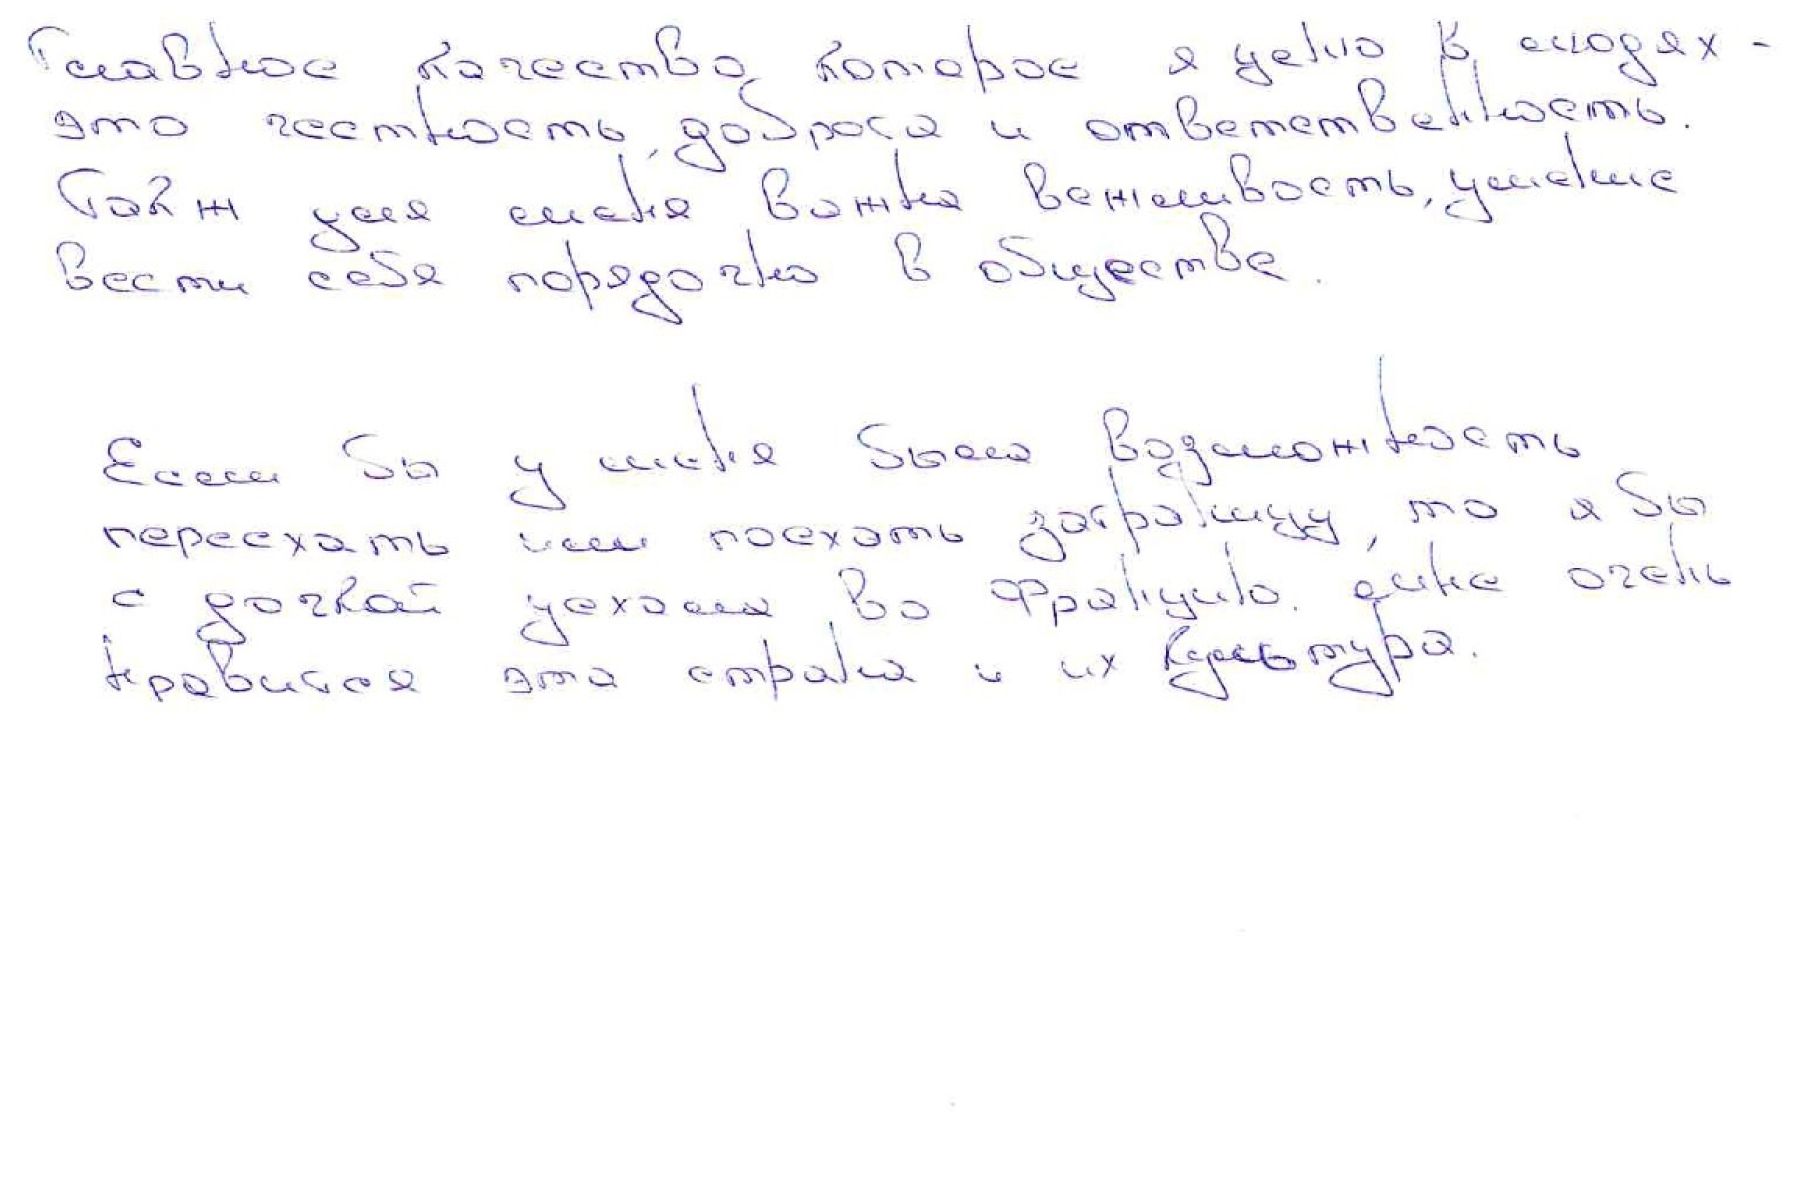 Главное качество, которое я ценю в людях -
это честность, доброта и ответственность.
Так ж для меня важна вежливость, умение
вести себя порядочно в обществе.
Если бы у меня была возможность
переехать или поехать заграницу, то я бы
с дочкой уехала во Францию. мне очень
нравится эта страна и их культура.